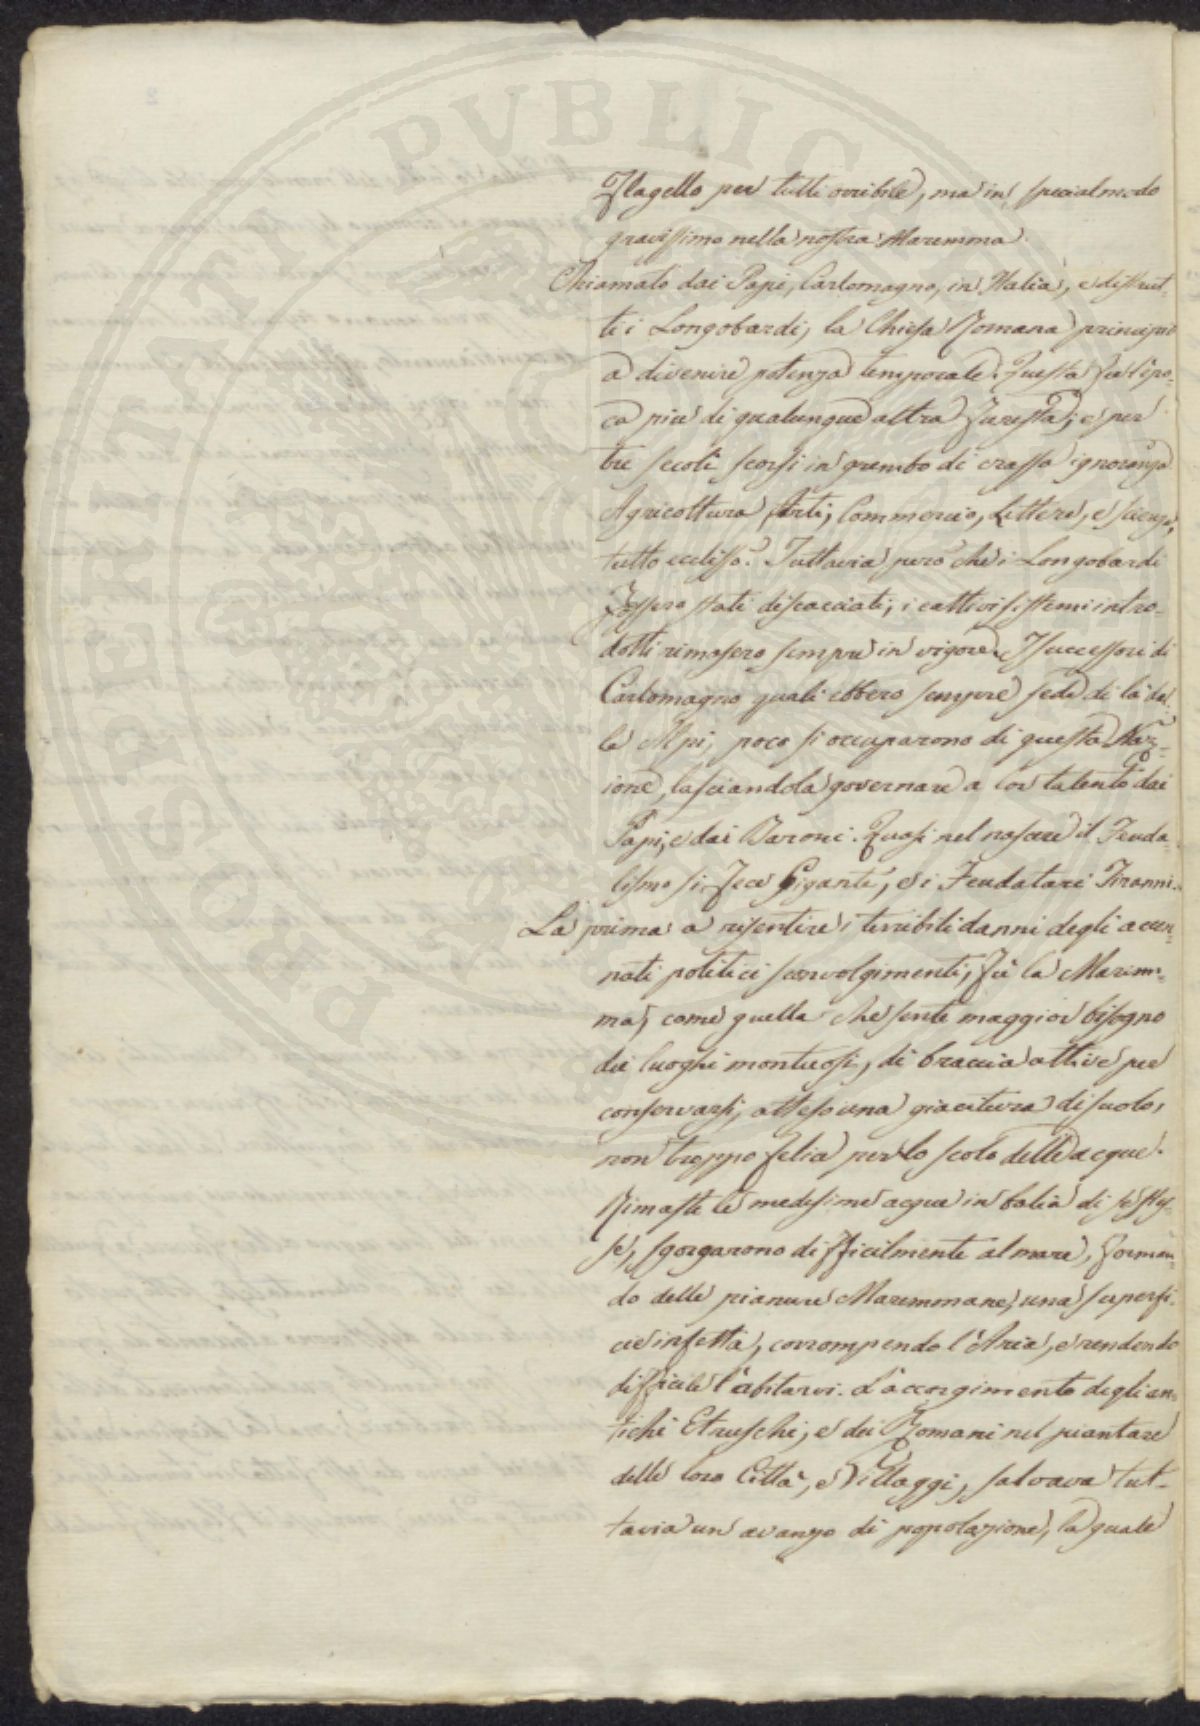 Flagello per tutti orribile, ma in special modo
gravissimo nella nostra Maremma.
Chiamato dai Papi, Carlomagno, in Italia, e distrut-
ti i Longobardi, la Chiesa Romana principiò
a divenire potenza temporale. Questa fu l'epo-
ca più di qualunque altra funesta; e per
tre secoli scorsi in grembo di crassa ignoranza
Agricoltura, Arti, Commercio, Lettere, e scienze,
tutto eclissò. Tuttavia però che i Longobardi
fossero stati discacciati, i cattivi sistemi intro-
dotti rimasero sempre in vigore. I successori di
Carlomagno quali ebbero sempre sede di là dal-
le Alpi, poco si occuparono di questa Naz-
ione, lasciandola governare a lor talento dai
Papi, e dai Baroni. Quasi nel nascere il Feuda-
lismo si fece Gigante, e i Feudatari Tiranni.
La prima a risentire i terribili danni degli accen-
nati politici sconvolgimenti, fù la Marem-
ma, come quella che sente maggior bisogno
dei luoghi montuosi, di braccia attive per
conservarsi, atteso una giacitura di suolo,
non troppo felice per lo scolo delle acque.
Rimaste le medesime acque in balia di se stes-
se, sgorgarono difficilmente al mare, forman-
do delle pianure Maremmane, una superfi-
cie infetta, corrompendo l'Aria, e rendendo
difficile l'abitarvi. L'accorgimento degli an-
tichi Etruschi, e dei Romani nel piantare
delle loro Città, e Villaggi, salvava tut-
tavia un avanzo di popolazione, la quale
PROSPERITATI PVBLICAE